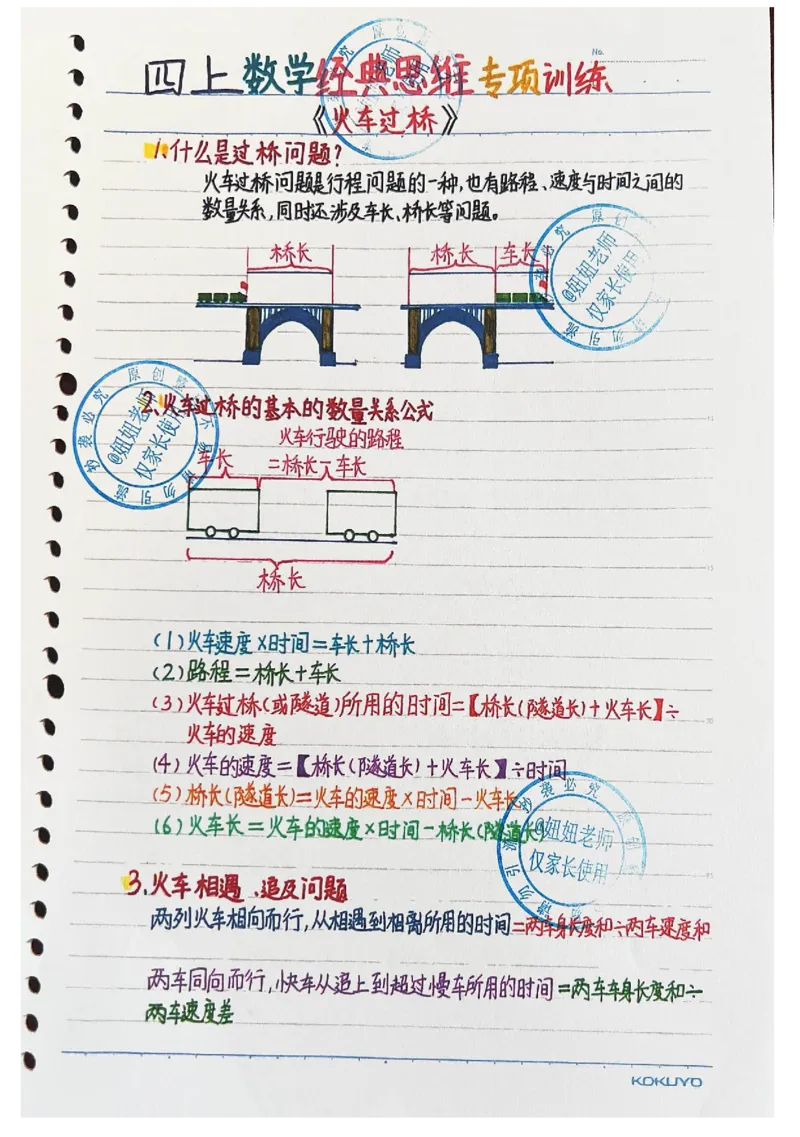 No.
四上数学经典思维专项训练
《火车过桥》
1.什么是过桥问题?
火车过桥问题是行程问题的一种,也有路程、速度与时间之间的
数量关系,同时还涉及车长、桥长等问题。
桥长 桥长 车长
2.火车过桥的基本的数量关系公式
火车行驶的路程
车长 =桥长-车长
桥长
(1)火车速度×时间=车长+桥长
(2)路程=桥长+车长
(3)火车过桥(或隧道)所用的时间=【桥长(隧道长)+火车长】÷
火车的速度
(4)火车的速度=【桥长(隧道长)+火车长】÷时间
(5)桥长(隧道长)=火车的速度×时间-火车长
(6)火车长=火车的速度×时间-桥长(隧道长)
3.火车相遇、追及问题
两列火车相向而行,从相遇到相离所用的时间=两车身长度和÷两车速度和
两车同向而行,快车从追上到超过慢车所用的时间=两车车身长度和÷
两车速度差
KOKUYO
@妞妞老师
仅家长使用
@妞妞老师
仅家长使用
@妞妞老师
仅家长使用